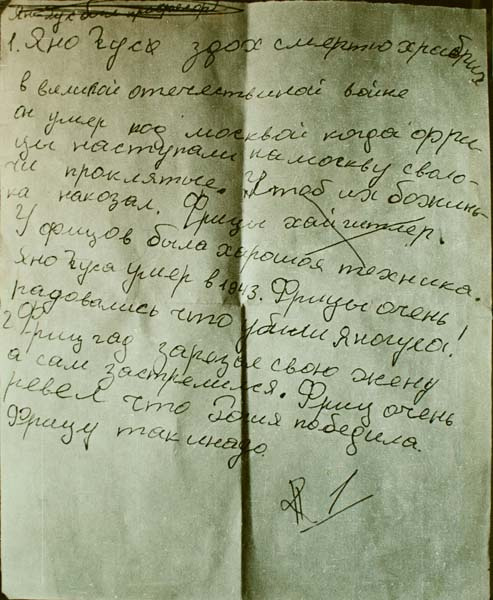 Яно Гус был профессор
1. Яно Гусъ здох смертю храбрих
в великой отечествиной войне
он умер под москвой когда фри-
цы наступали на москву своло-
чи проклятые. Чтоб их боженъ-
ка накозал. Фрицы хайгитлер.
У фицов была хорошая техника.
Яно Гуса умер в 1943. Фрицы очень
радовались что убили Яногуса!
2 Фриц гад зарезал свою жену
а сам застрелился. Фриц очень
ревел что победила.
Фрицу так инадо.
1